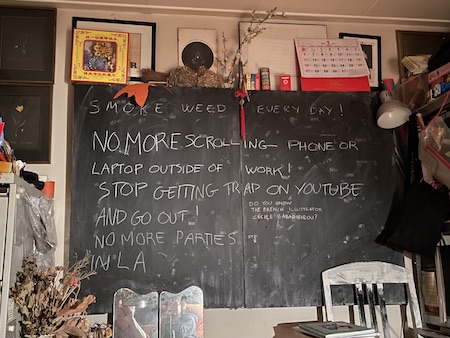 SMOKE WEED EVERY DAY!
NO MORE SCROLLING PHONE OR
LAPTOP OUTSIDE OF WORK!
STOP GETTING TRAP ON YOUTUBE
AND GO OUT!
DO YOU KNOW
THE FRENCH ILLUSTRATOR
NO MORE PARTIES
IN LA